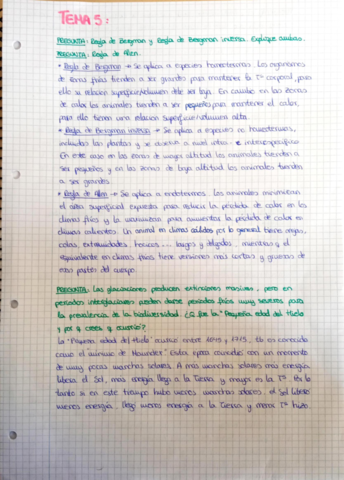 TEMA 5:
PREGUNTA: Regla de Bergman y Regla de Bergman inversa. Explique ambas.
PREGUNTA: Regla de Allen.
* Regla de Bergman → Se aplica a especies homeotermas. Los organismos
de zonas frías tienden a ser grandes para mantener la Tª corporal, para
ello su relación superficie/volumen debe ser baja. En cambio en las zonas
de calor los animales tienden a ser pequeños para mantener el calor,
para ello tienen una relación superficie/volumen alta.
* Regla de Bergman inversa → Se aplica a especies no homeotermas,
incluidas las plantas y se observa a nivel intra e interespecífico.
En este caso en las zonas de mayor altitud los animales tienden a
ser pequeños y en las zonas de baja altitud los animales tienden
a ser grandes.
* Regla de Allen → Se aplica a endotermos. Los animales minimizan
el área superficial expuesta para reducir la pérdida de calor en los
climas fríos y la maximizan para aumentar la pérdida de calor en
climas calientes. Un animal en climas cálidos por lo general tiene orejas,
colas, extremidades, hocicos... largos y delgados, mientras q el
equivalente en climas fríos tiene versiones más cortas y gruesas de
esas partes del cuerpo.
PREGUNTA: Las glaciaciones producen extinciones masivas, pero en
periodos interglaciares pueden darse periodos fríos muy severos para
la prevalencia de la biodiversidad. ¿Q fue la "Pequeña edad del Hielo
y por q crees q ocurrió?
La "Pequeña edad del Hielo" ocurrió entre 1645 y 1715, tb es conocida
como el mínimo de Maunder. Esta época coincide con un momento
de muy pocas manchas solares. A más manchas solares más energía
libera el Sol, más energía llega a la Tierra y mayor es la Tª. Por lo
tanto si en este tiempo hubo menos manchas solares, el Sol liberó
menos energía, llegó menos energía a la Tierra y menor Tª hubo.